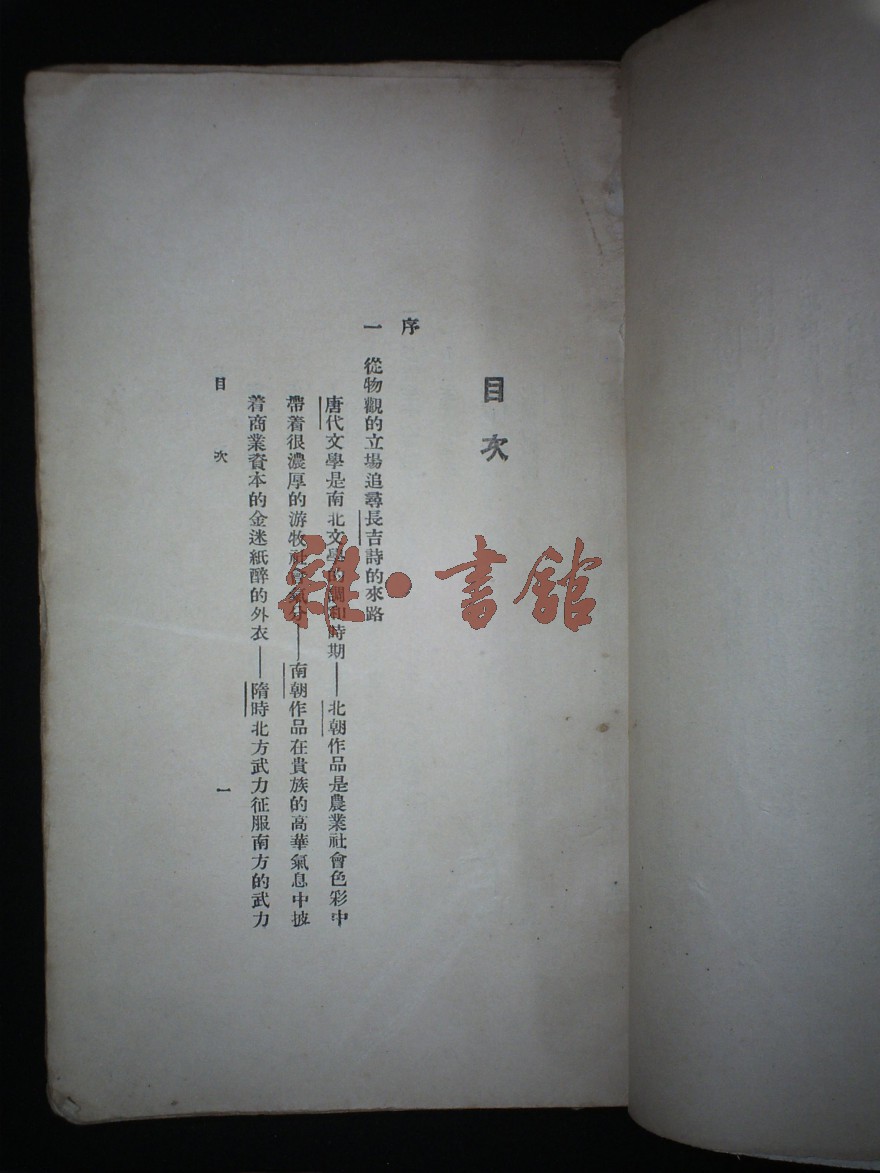 目次
序
一　從物觀的立場追尋長吉詩的來路
唐代文學是南北文學的調和時期——北朝作品是農業社會色彩中
帶着很濃厚的游牧社會氣分——南朝作品在貴族的高華氣息中披
着商業資本的金迷紙醉的外衣——隋時北方武力征服南方的武力
目次　一
雜·書館